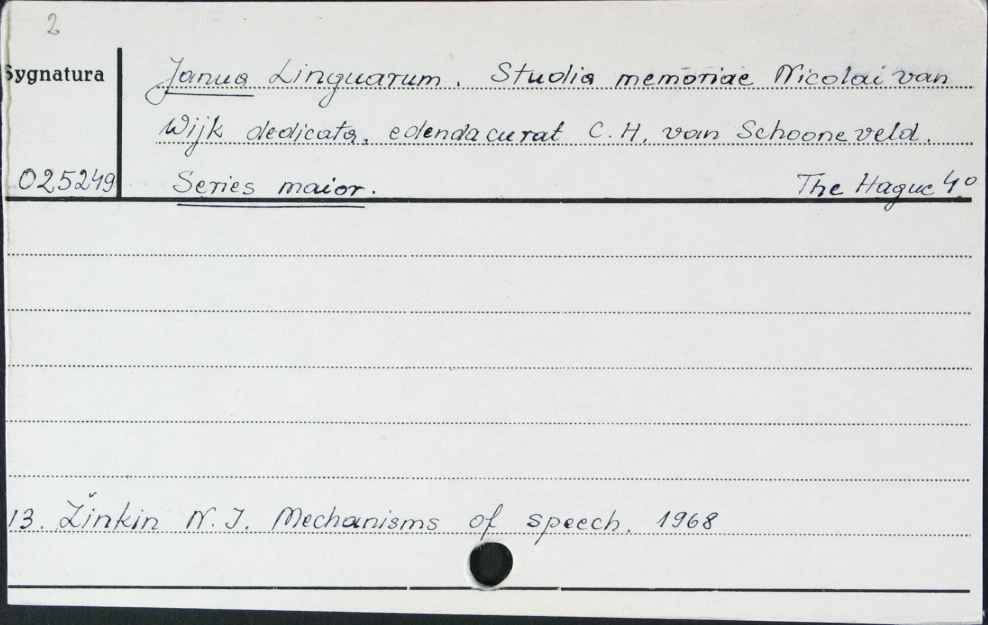 2
Sygnatura
Janua Linguarum. Studia memoriae Nicolai van
Wijk dedicata, edenda curat C. H. van Schooneveld.
025249 Series maior. The Hague 4°
13. Žinkin N. I. Mechanisms of speech. 1968